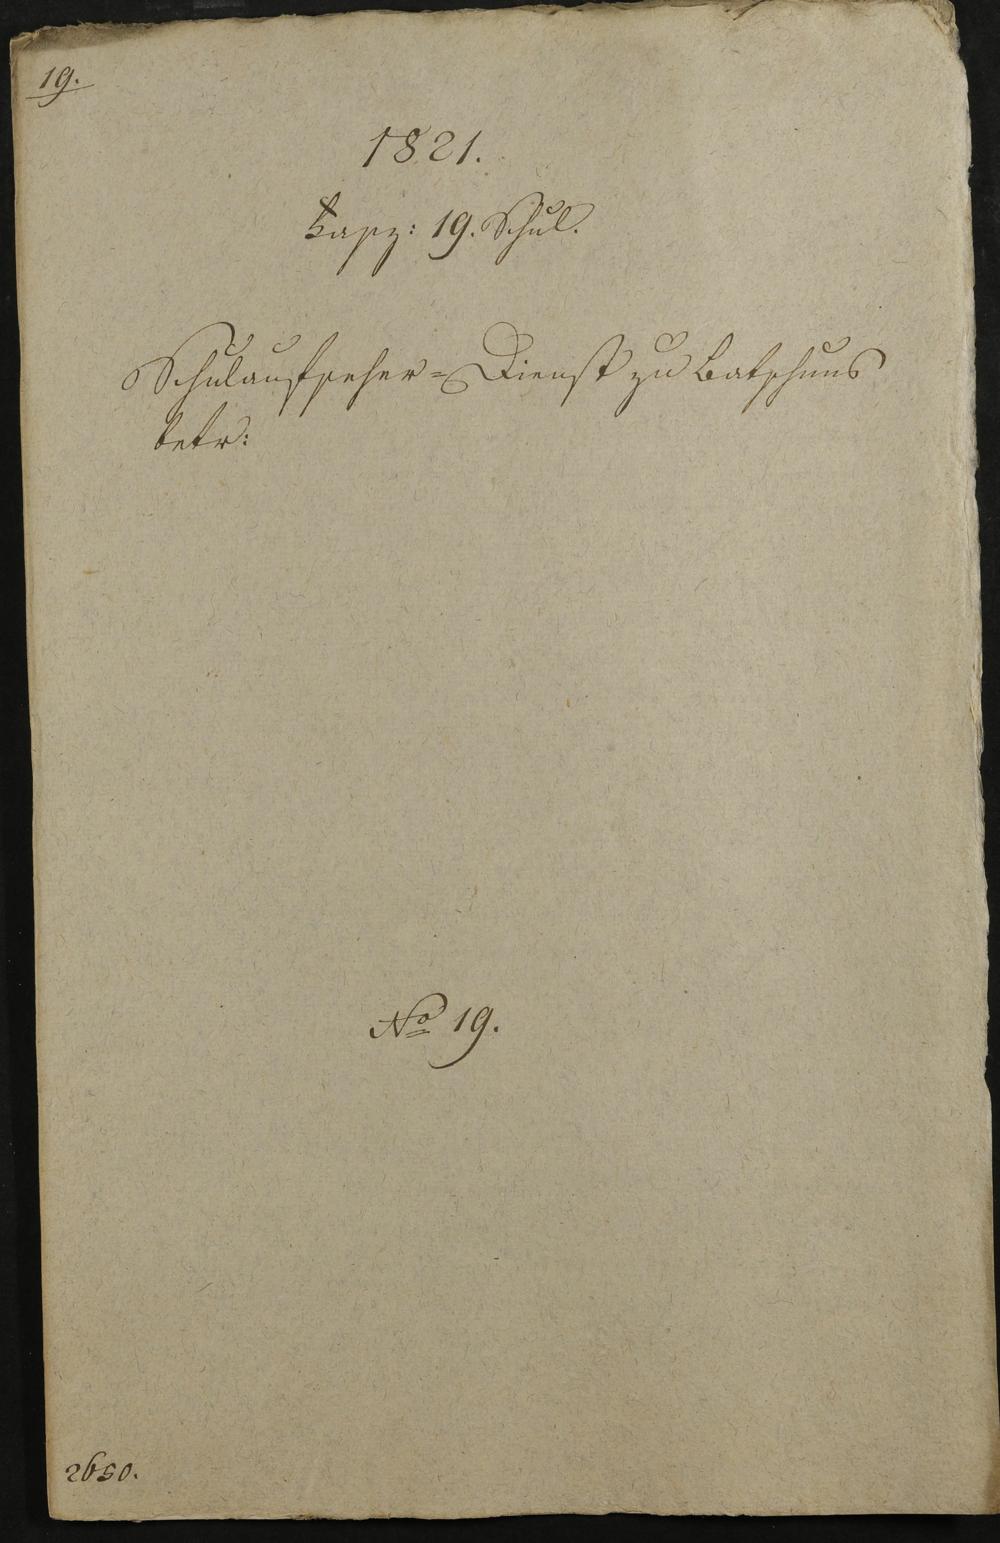 19.
1821.
Fasz: 19. Schul.
Schulaufseher=Dienst zu Batschuns
betr:
No 19.
2650.